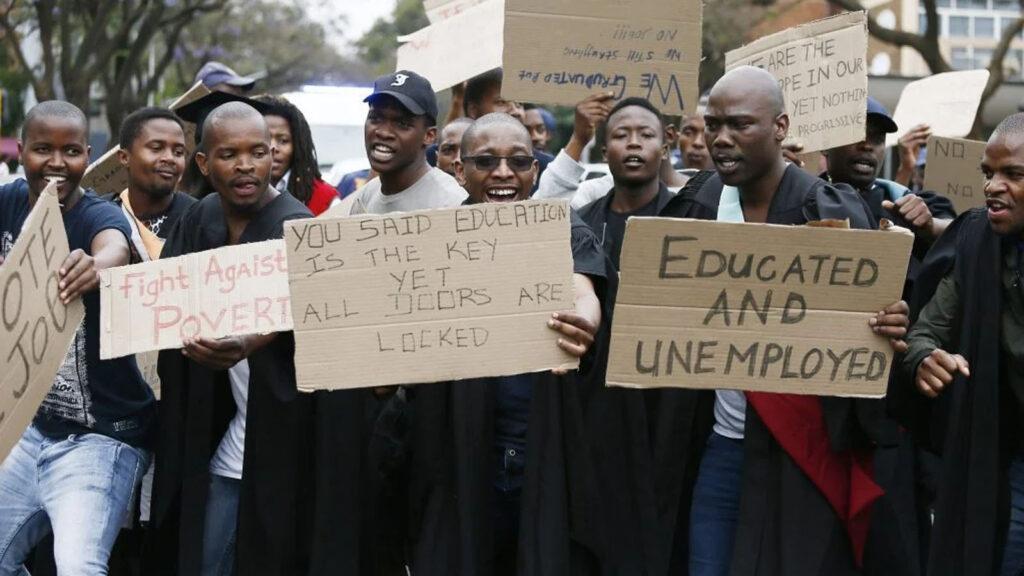 WE GRADUATED BUT
WE STILL STRUGGLING
NO JOB!!!
ARE THE
OPE IN OUR
YET NOTHIN
PROGRESSIVE
NO
NO
OTE
JOB
Fight Against
POVERT
YOU SAID EDUCATION
IS THE KEY
YET
ALL DOORS ARE
LOCKED
EDUCATED
AND
UNEMPLOYED